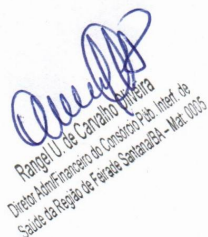 Rangel U. de Carvalho Oliveira
Diretor Adm/Financeiro do Consórcio Púb. Interf. de
Saúde da Região de Feira de Santana/BA - Mat. 0005